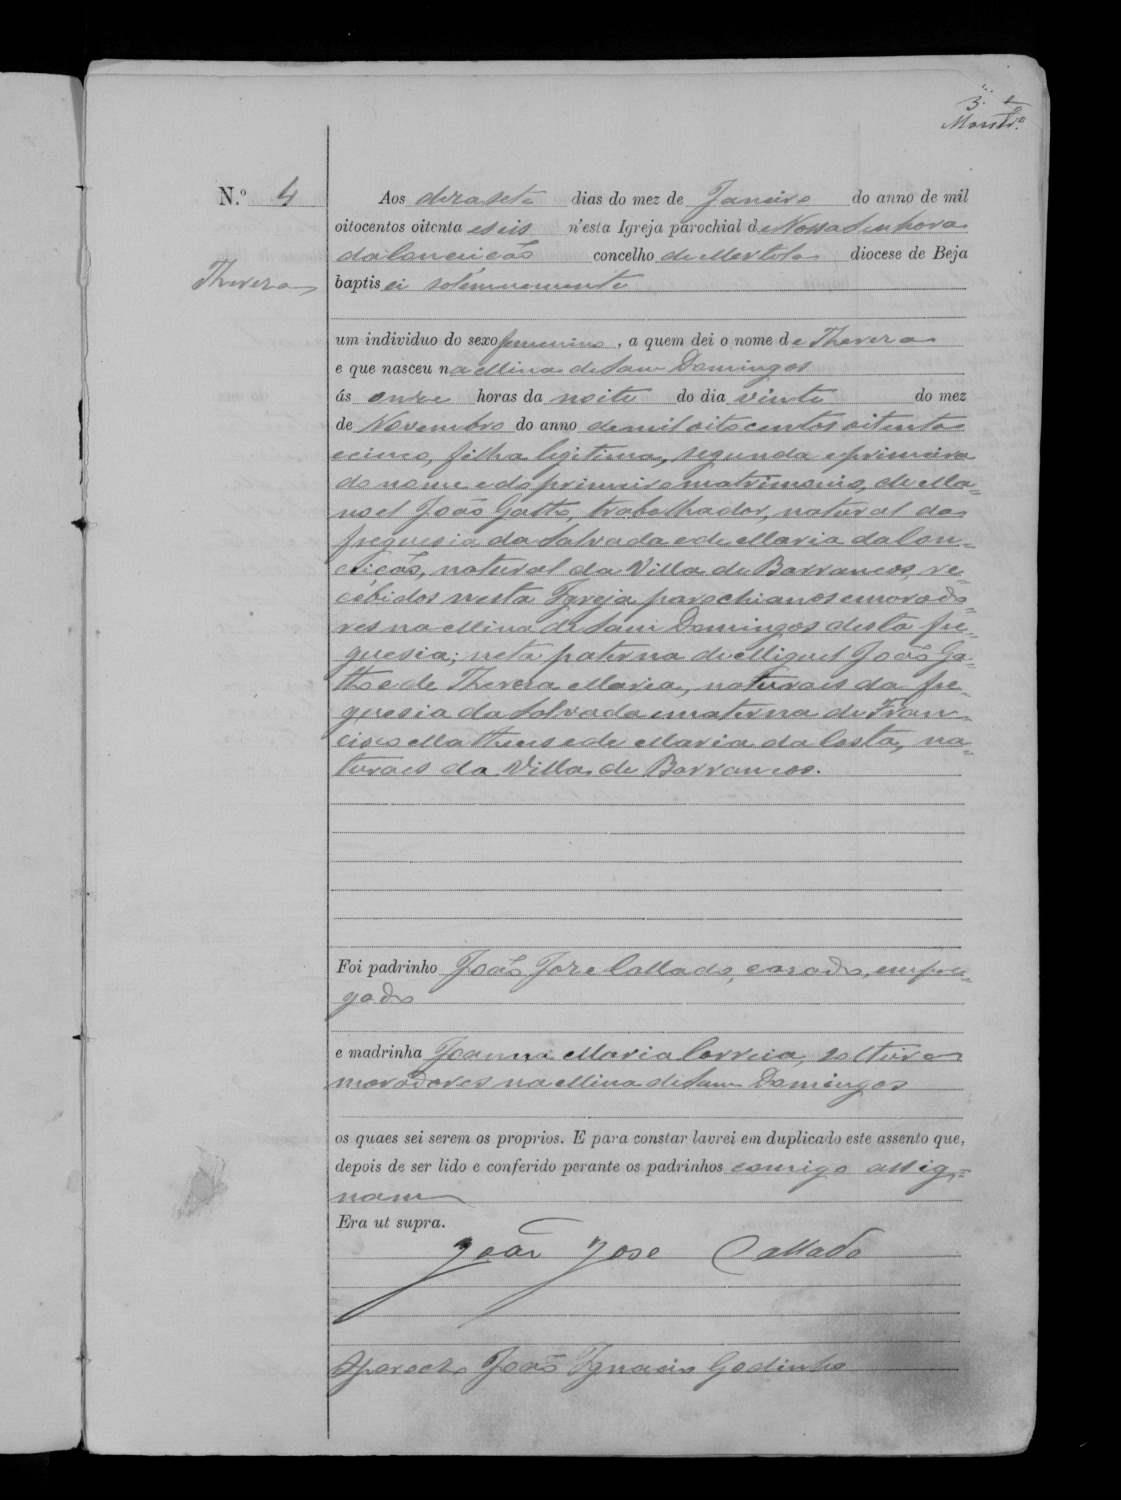 3.
N.º 4
Thereza
Aos dezasete dias do mez de Janeiro do anno de mil
oitocentos oitenta e seis n'esta Igreja parochial de Nossa Senhora
da Conceicão concelho de Mertola diocese de Beja
baptisei solemnemente
um individuo do sexo femenino, a quem dei o nome de Thereza
e que nasceu na Mina de Sam Domingos
ás onze horas da noite do dia vinte do mez
de Novembro do anno de mil oito centos oitenta
e cinco, filha legitima, segunda e primeira
do nome e do primeiro matrimonio, de Ma-
noel João Gatto, trabalhador, natural da
freguesia da Salvada e de Maria da Con-
ceicão, natural da Villa de Barrancos, re-
cebidos nesta Igreja parochianos e morado-
res na Mina de Sam Domingos desta fre-
guesia; neta paterna de Miguel João Ga-
tto e de Thereza Maria, naturaes da fre-
guesia da Salvada e materna de Fran-
cisco Matheus e de Maria da Costa, na-
turaes da Villa de Barrancos.
Foi padrinho João Jose Collado, casado, empre-
gado
e madrinha Joanna Maria Correia, solteira
moradores na Mina de Sam Domingos
os quaes sei serem os proprios. E para constar lavrei em duplicado este assento que,
depois de ser lido e conferido perante os padrinhos comigo assig-
nam
Era ut supra.
João Jose Collado
O parocho João Ignacio Godinho